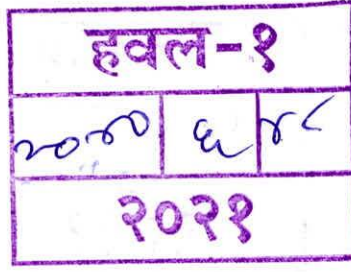 हवल-१
२०७० ६ ४८
२०२१